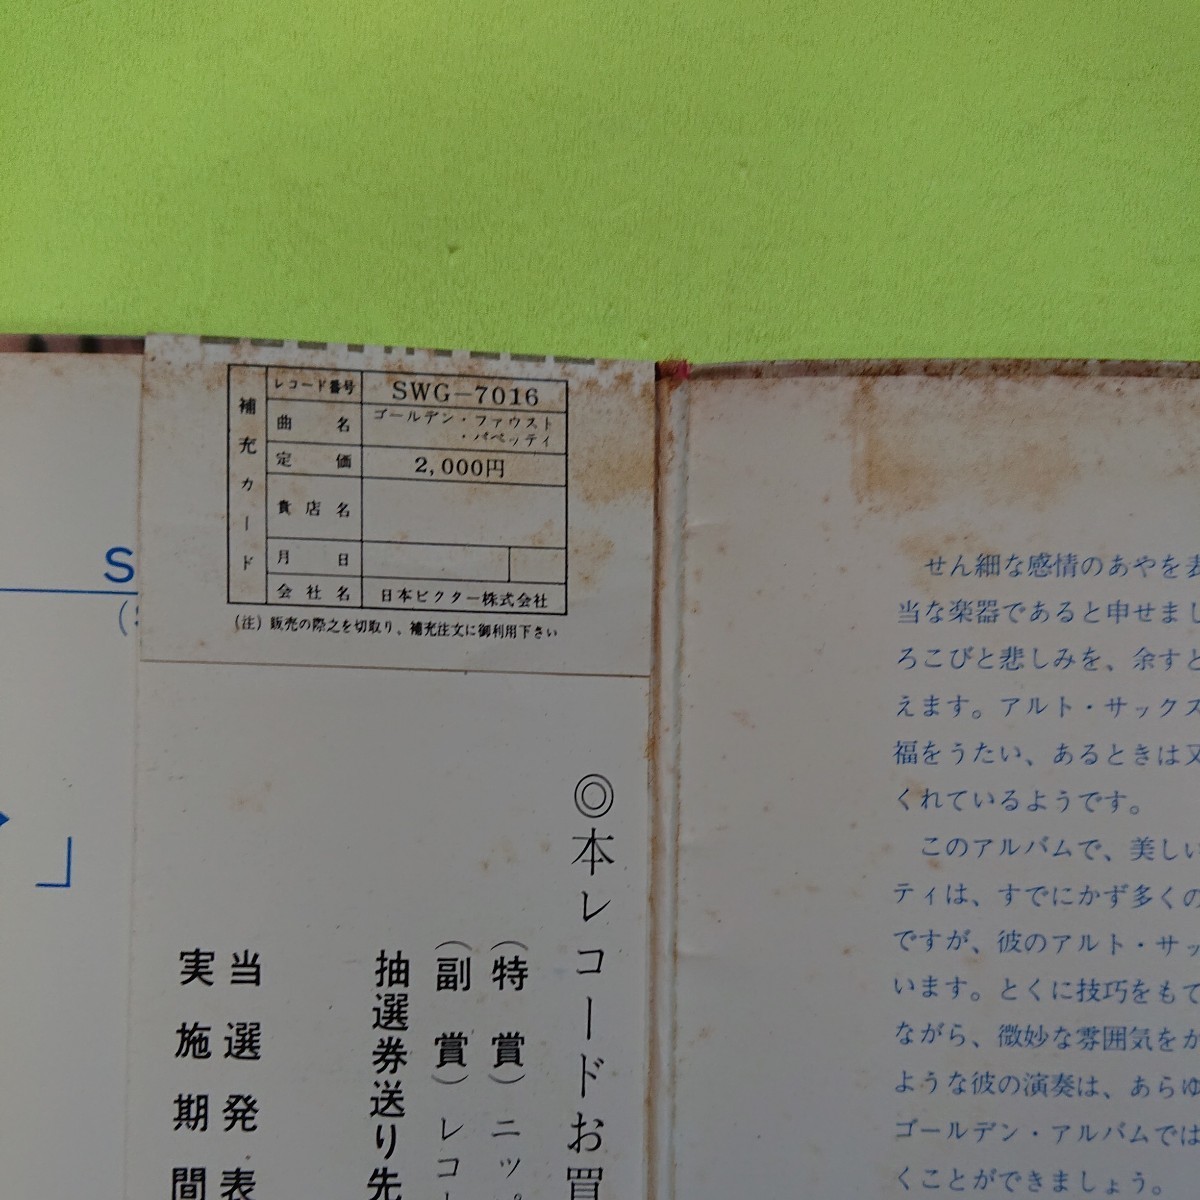 補充カード
レコード番号 SWG-7016
曲名 ゴールデン・ファウスト
・パペッティ
定価 2,000円
貴店名
月日
会社名 日本ビクター株式会社
(注) 販売の際之を切取り、補充注文に御利用下さい
S
(
」
◎本レコードお買
(特賞)ニッ
(副賞)レコ
抽選券送り先
当選発表
実施期間
せん細な感情のあやを表
当な楽器であると申せまし
ろこびと悲しみを、余すと
えます。アルト・サックス
福をうたい、あるときは又
くれているようです。
このアルバムで、美しい
ティは、すでにかず多くの
ですが、彼のアルト・サッ
います。とくに技巧をもて
ながら、微妙な雰囲気をか
ような彼の演奏は、あらゆ
ゴールデン・アルバムでは
くことができましょう。